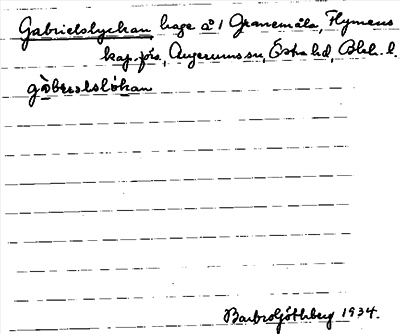 Gabrielslyckan hage å 1 Granemåla, Flymens
kap.förs., Augerums sn, Östra hd, Blek. l.
Barbro Göthberg 1934.